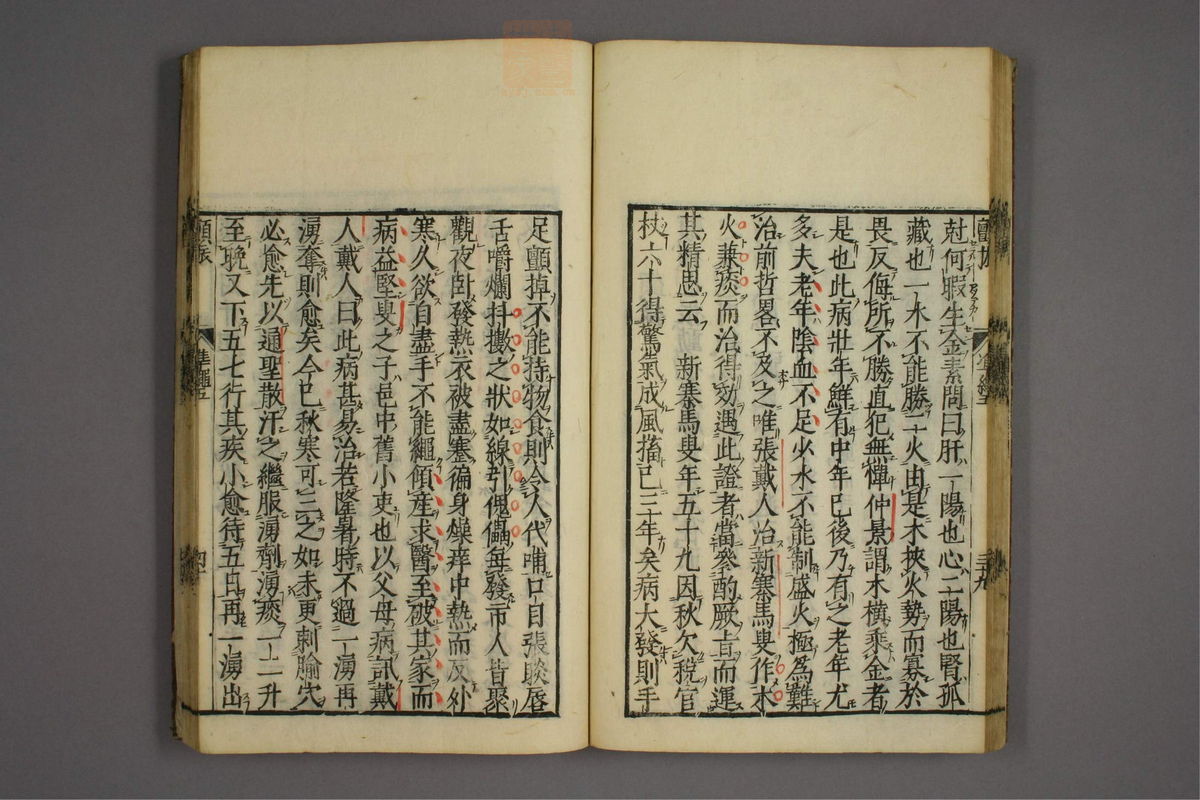 尅何暇生金素問曰肝一陽也心二陽也腎孤
藏也一水不能勝二火由是木挾火勢而寡於
畏反侮所不勝直犯無憚仲景謂木橫乘金者
是也此病壯年鮮有中年已後乃有之老年尤
多夫老年陰血不足少水不能制盛火極為難
治前哲畧不及之唯張戴人治新寨馬叟作木
火兼痰而治得効遇此證者當參酌厥旨而運
其精思云　新寨馬叟年五十九因秋欠稅官
杖六十得驚氣成風搐已三年矣病大發則手
足顫掉不能持物食則令人代哺口目張睒唇
舌嚼爛抖擻之狀如線引傀儡每發市人皆聚
觀夜卧發熱衣被盡蹇徧身燥痒中熱而反外
寒久欲自盡手不能繩傾産求醫至破其家而
病益堅叟之子邑中舊小吏也以父母病訊戴
人戴人曰此病甚易治若隆暑時不過一湧再
湧奪則愈矣今已秋寒可三之如未更刺腧穴
必愈先以通聖散汗之繼服湧劑湧痰一二升
至晩又下五七行其疾小愈待五日再一湧出